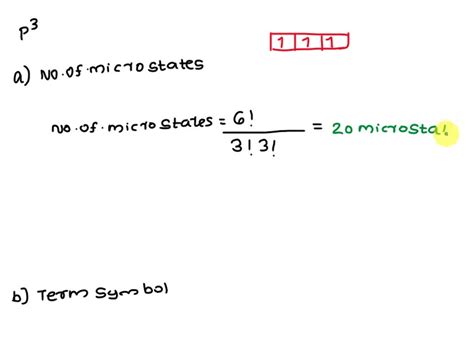 p³
1 1 1
a) No.of.microstates
No.of.microstates = 6! / 3! 3! = 20 microsta
b) Term symbol